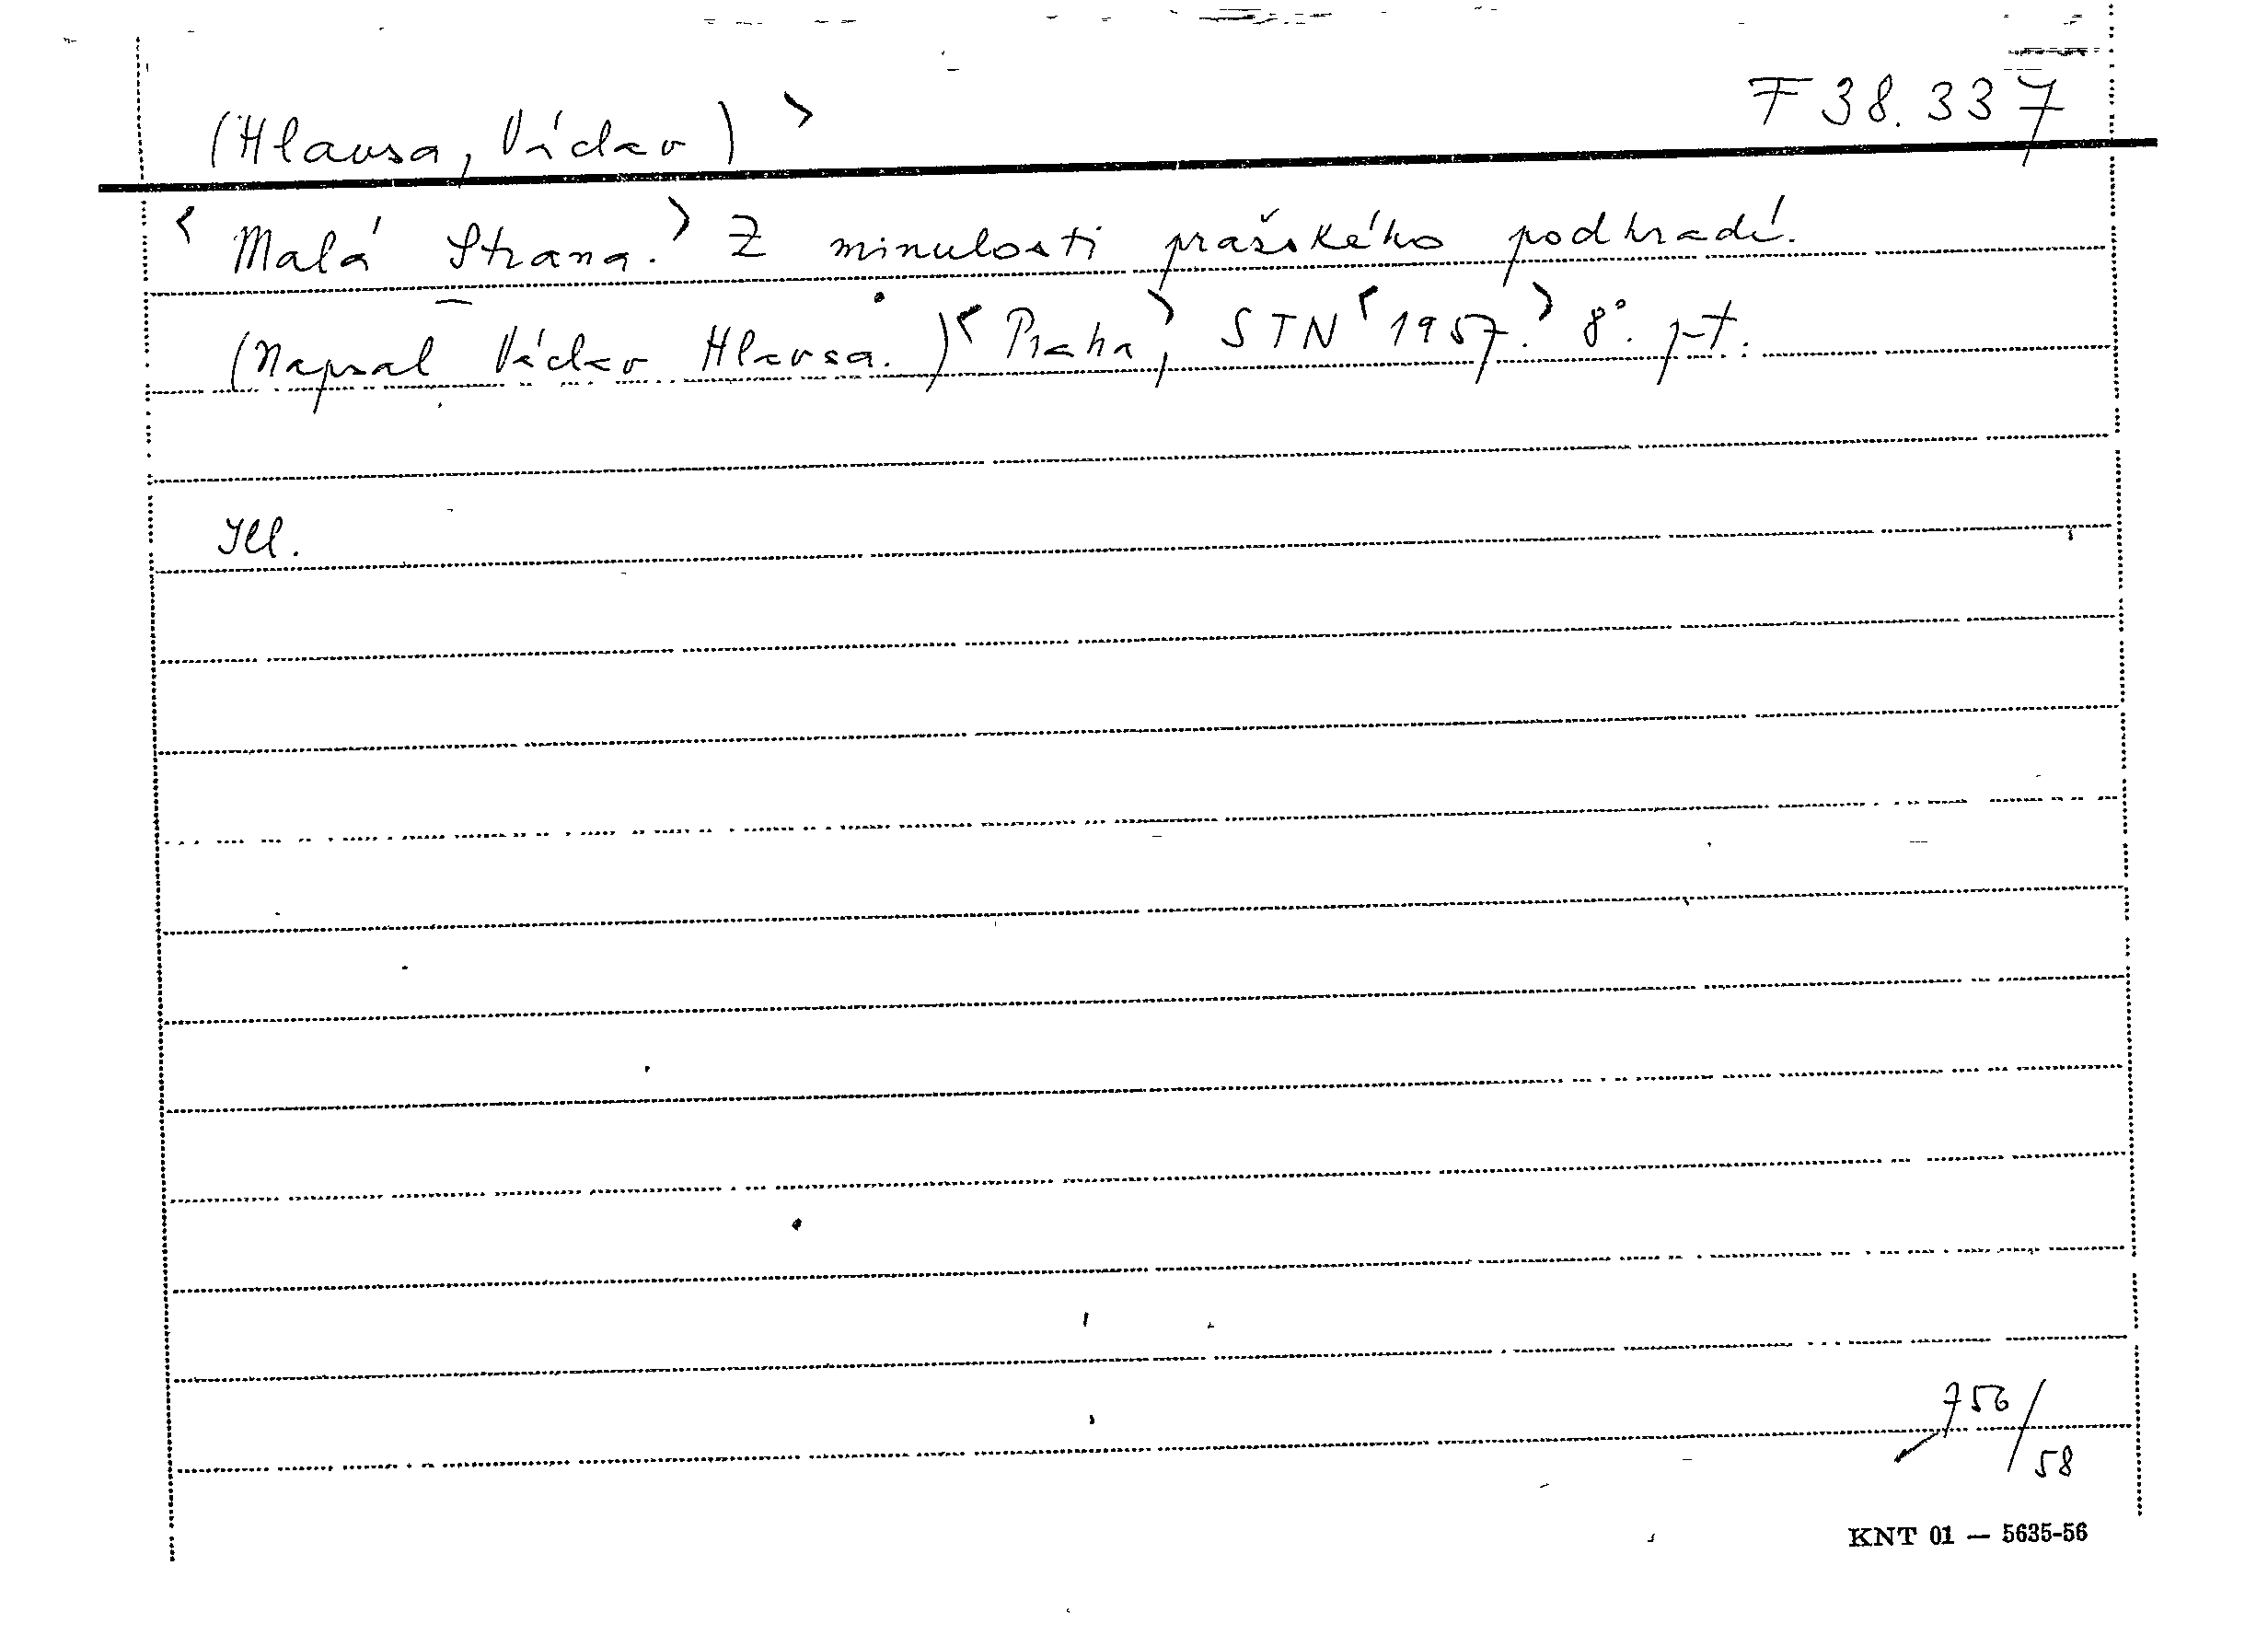 (Hlavsa, Václav) >
F 38.337
< Malá Strana. > Z minulosti pražského podhradí.
(Napsal Václav Hlavsa.) < Praha, > STN < 1957. > 8°.
Ill.
756/58
KNT 01 — 5635-56